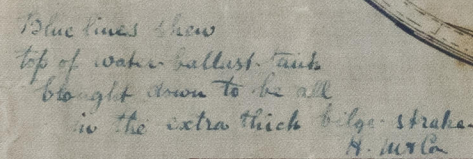 Blue lines shew
top of water-ballast-tank
brought down to be all
in the extra thick bilge-strake.
H. McCon